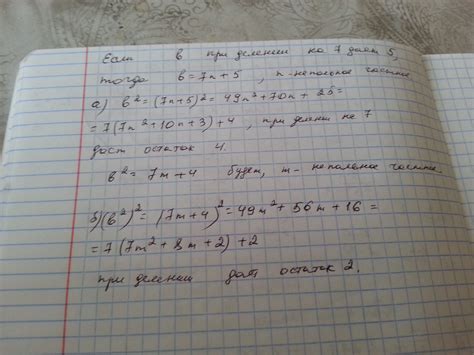 Если в при делении на 7 дает 5,
тогда в = 7n + 5, n - неполное частное
а) в² = (7n+5)² = 49n² + 70n + 25 =
= 7(7n² + 10n + 3) + 4, при делении на 7
даст остаток 4.
в² = 7m + 4 будет, m - неполное частное
б) (в²)² = (7m + 4)² = 49m² + 56m + 16 =
= 7(7m² + 8m + 2) + 2
при делении даст остаток 2.